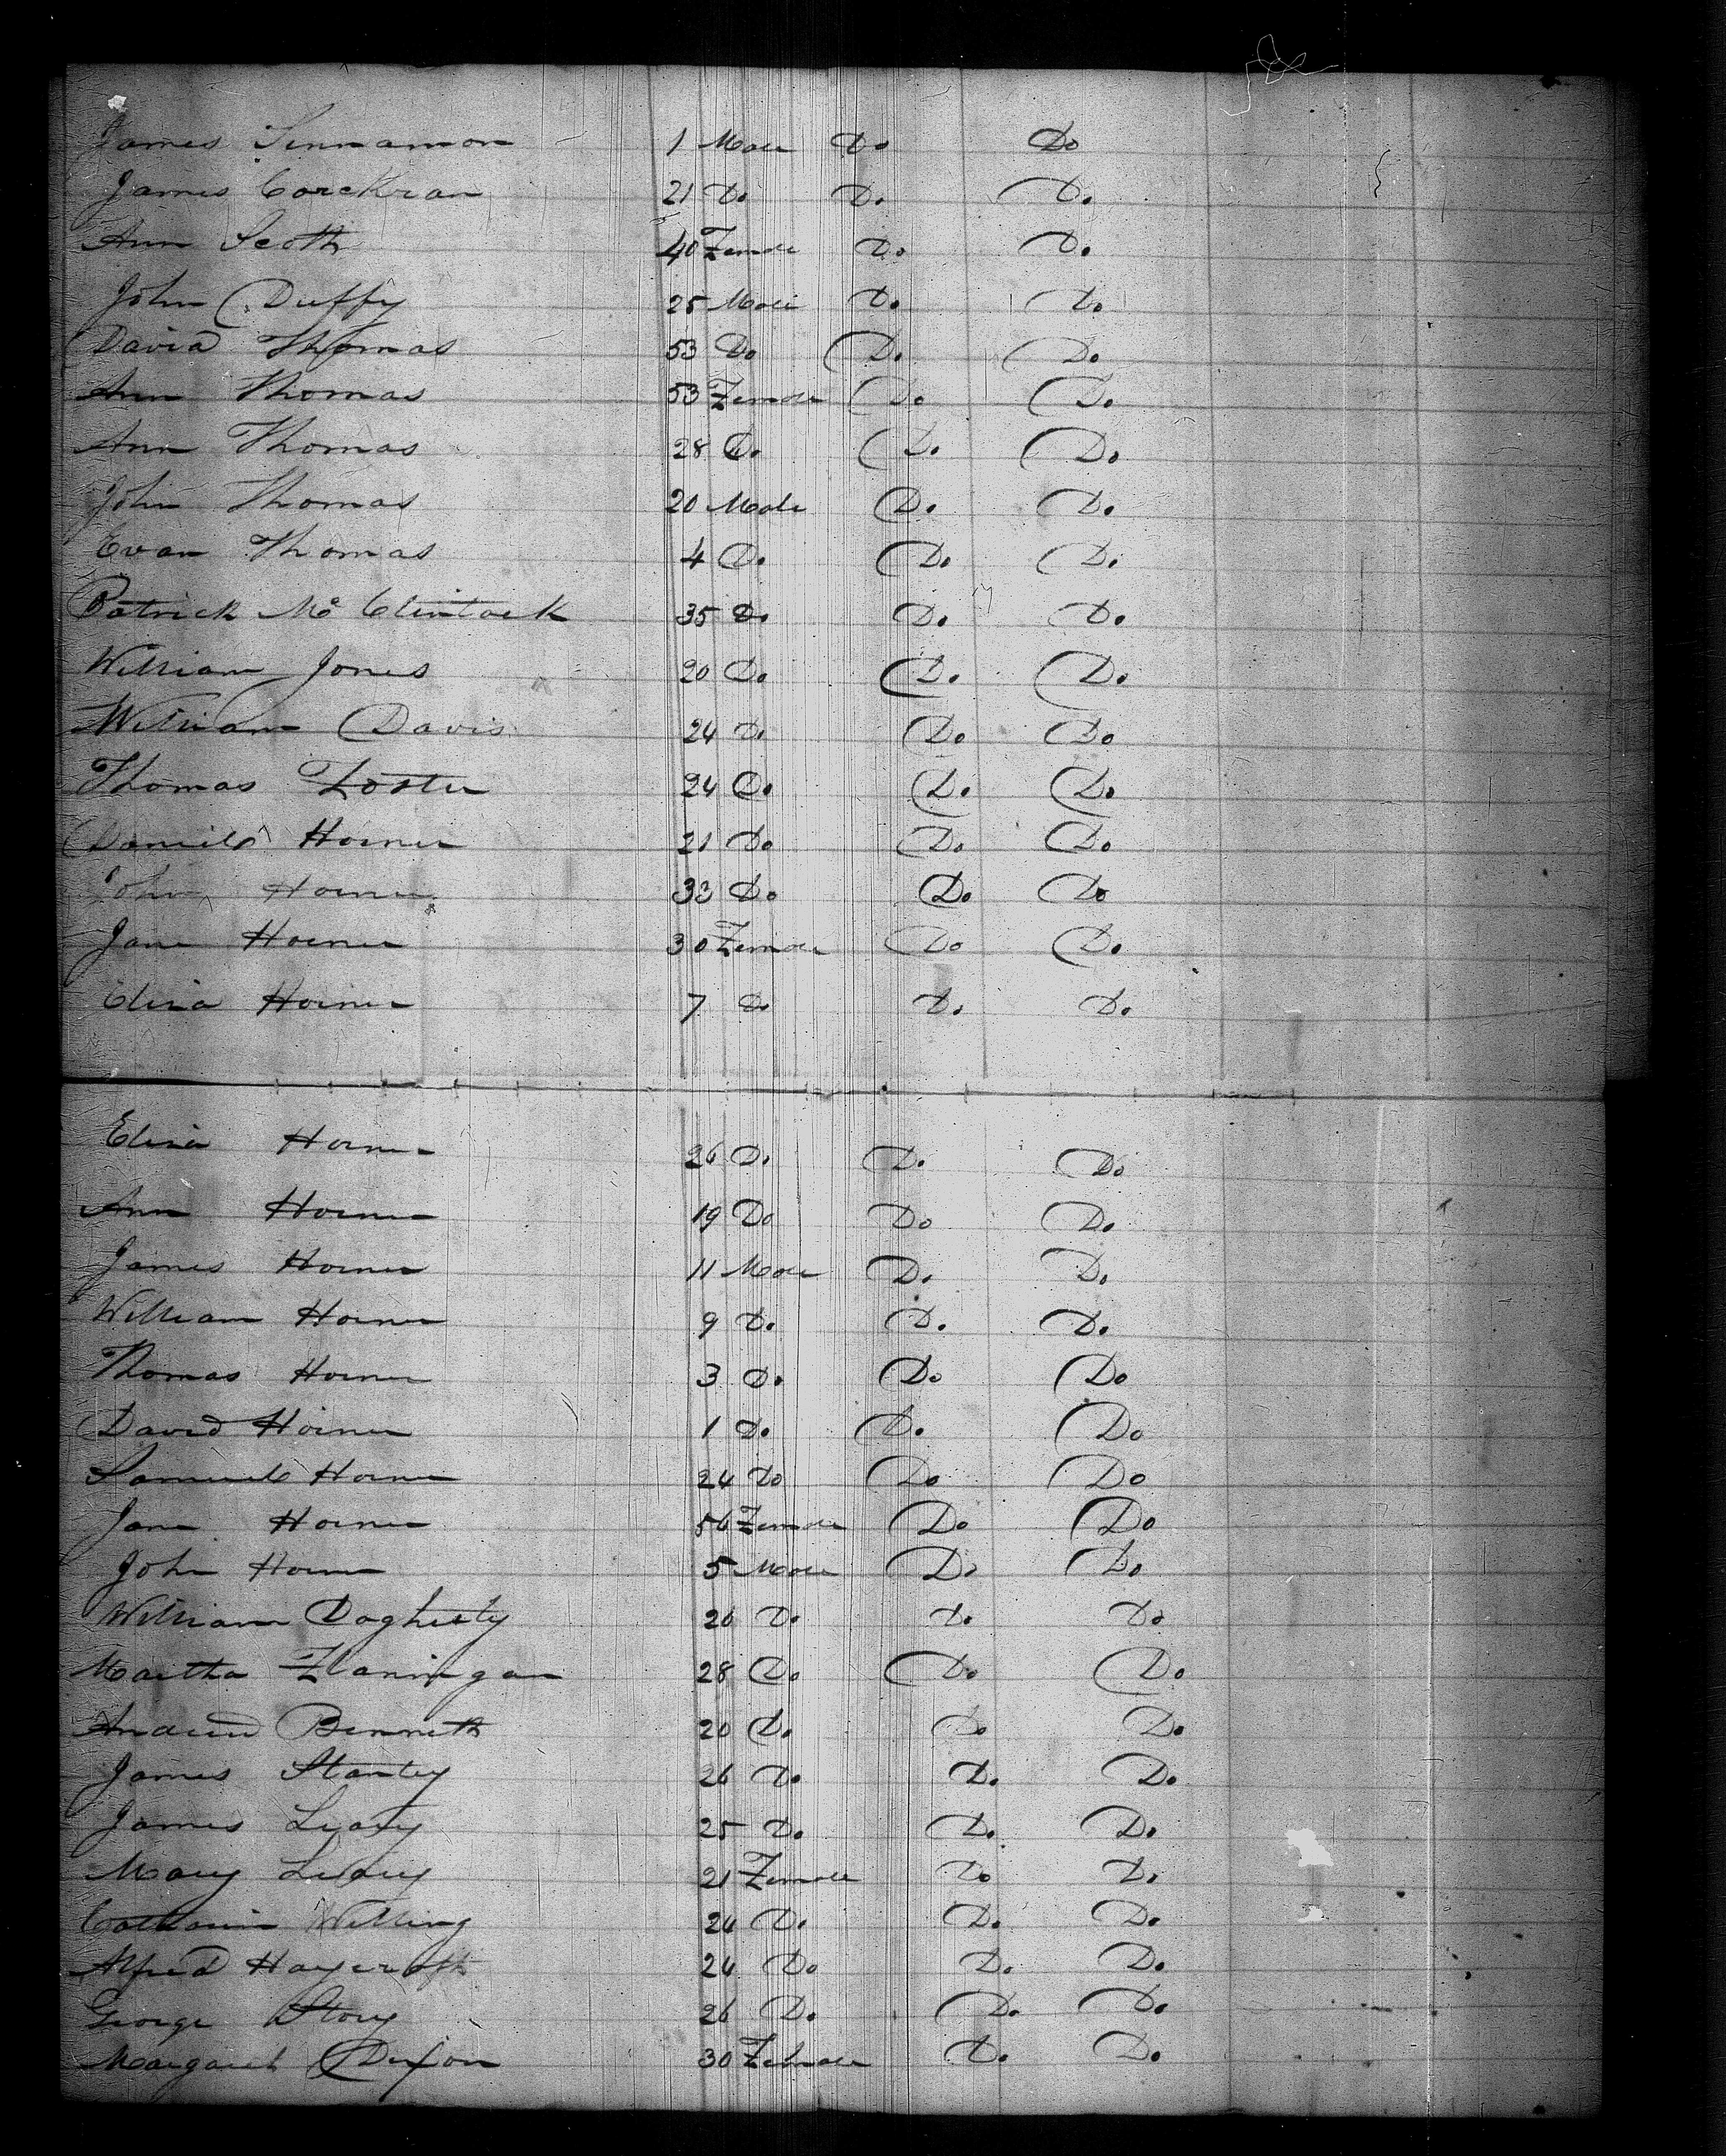 James Sinnamon 1 Male Do Do
James Corckran 21 Do. Do. Do.
Ann Scott 40 Female Do. Do.
John Duffy 25 Male Do. Do.
David Thomas 53 Do Do. Do.
Ann Thomas 53 Female Do. Do.
Ann Thomas 28 Do. Do. Do.
John Thomas 20 Male Do. Do.
Evan Thomas 4 Do. Do. Do.
Patrick Mc Clintock 35 Do. Do. Do.
William Jones 20 Do. Do. Do.
William Davis 24 Do. Do Do
Thomas Foster 24 Do. Do. Do.
Daniel Horner 21 Do Do. Do.
John Horner 33 Do Do. Do
Jane Horner 30 Female Do Do.
Eliza Horner 7 Do Do. Do.
Eliza Horner 26 Do. Do. Do
Ann Horner 19 Do Do Do.
James Horner 11 Male Do. Do.
William Horner 9 Do. Do. Do.
Thomas Horner 3 Do. Do Do
David Horner 1 Do. Do. Do
Samuel Horner 24 Do Do Do
Jane Horner 56 Female Do Do
John Horner 5 Male Do. Do
William Dogherty 26 Do. Do. Do
Martha Flaningan 28 Do Do Do
Andrew Bennett 20 Do. Do Do.
James Stanley 26 Do. Do. Do.
James Leary 25 Do. Do. Do.
Mary Leary 21 Female Do Do.
Catharin Willing 24 Do. Do. Do.
Alfred Haycroft 24 Do Do. Do.
George Story 26 Do. Do. Do.
Margaret Dixon 30 Female Do. Do.